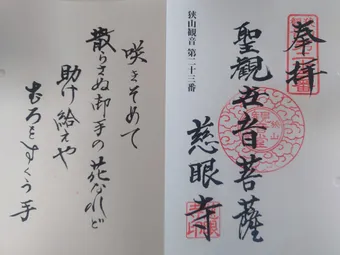 奉拝
聖觀世音菩薩
慈眼寺
狭山観音 第二十三番
咲きそめて
散らさぬ御手の花なれど
助け給えや
すくう手